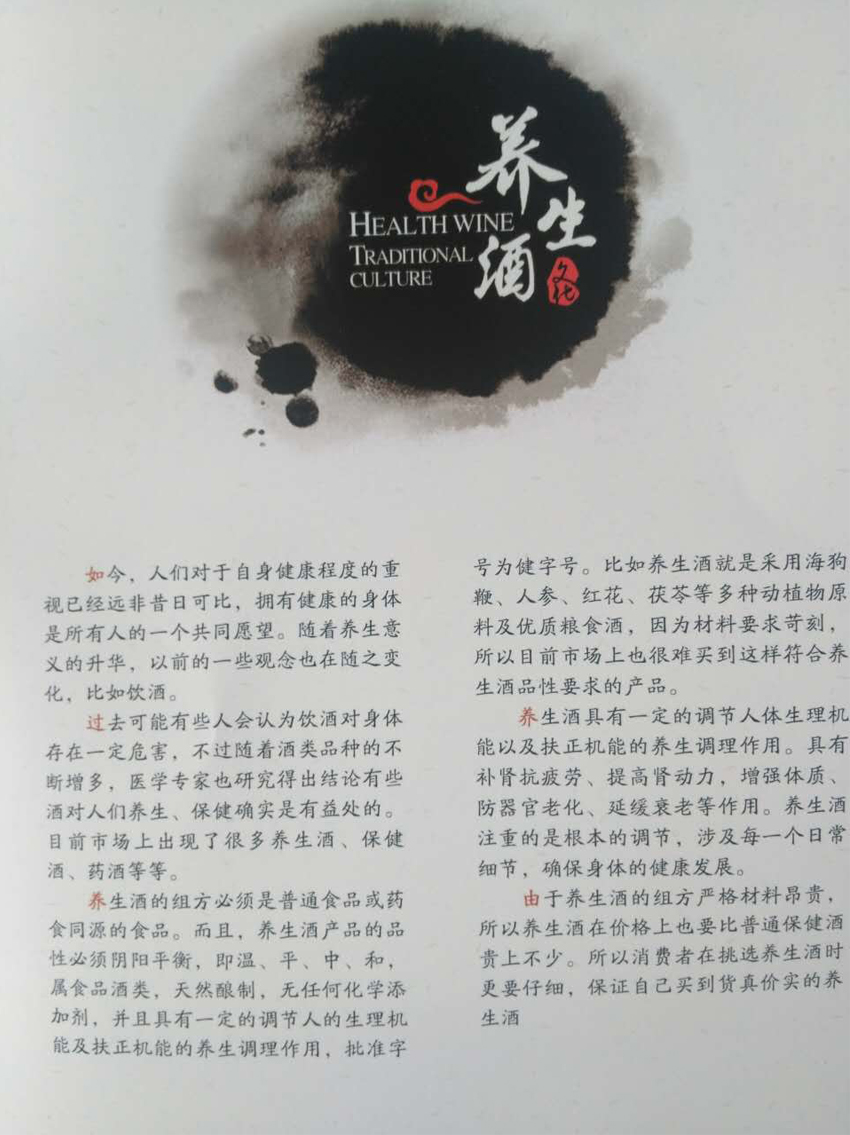 养生酒
文化
HEALTH WINE
TRADITIONAL
CULTURE
如今，人们对于自身健康程度的重
视已经远非昔日可比，拥有健康的身体
是所有人的一个共同愿望。随着养生意
义的升华，以前的一些观念也在随之变
化，比如饮酒。
过去可能有些人会认为饮酒对身体
存在一定危害，不过随着酒类品种的不
断增多，医学专家也研究得出结论有些
酒对人们养生、保健确实是有益处的。
目前市场上出现了很多养生酒、保健
酒、药酒等等。
养生酒的组方必须是普通食品或药
食同源的食品。而且，养生酒产品的品
性必须阴阳平衡，即温、平、中、和，
属食品酒类，天然酿制，无任何化学添
加剂，并且具有一定的调节人的生理机
能及扶正机能的养生调理作用，批准字
号为健字号。比如养生酒就是采用海狗
鞭、人参、红花、茯苓等多种动植物原
料及优质粮食酒，因为材料要求苛刻，
所以目前市场上也很难买到这样符合养
生酒品性要求的产品。
养生酒具有一定的调节人体生理机
能以及扶正机能的养生调理作用。具有
补肾抗疲劳、提高肾动力，增强体质、
防器官老化、延缓衰老等作用。养生酒
注重的是根本的调节，涉及每一个日常
细节，确保身体的健康发展。
由于养生酒的组方严格材料昂贵，
所以养生酒在价格上也要比普通保健酒
贵上不少。所以消费者在挑选养生酒时
更要仔细，保证自己买到货真价实的养
生酒